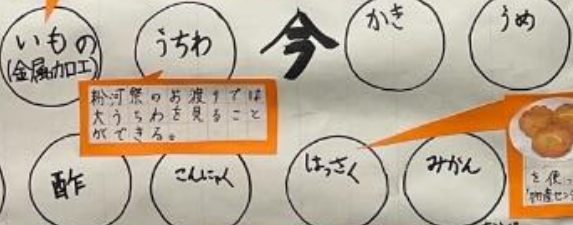 いもの
(金属加工)
うちわ
今
かき
うめ
粉河祭のお渡りでは
大うちわを見ること
ができる。
酢
こんにゃく
はっさく
みかん
を使っ